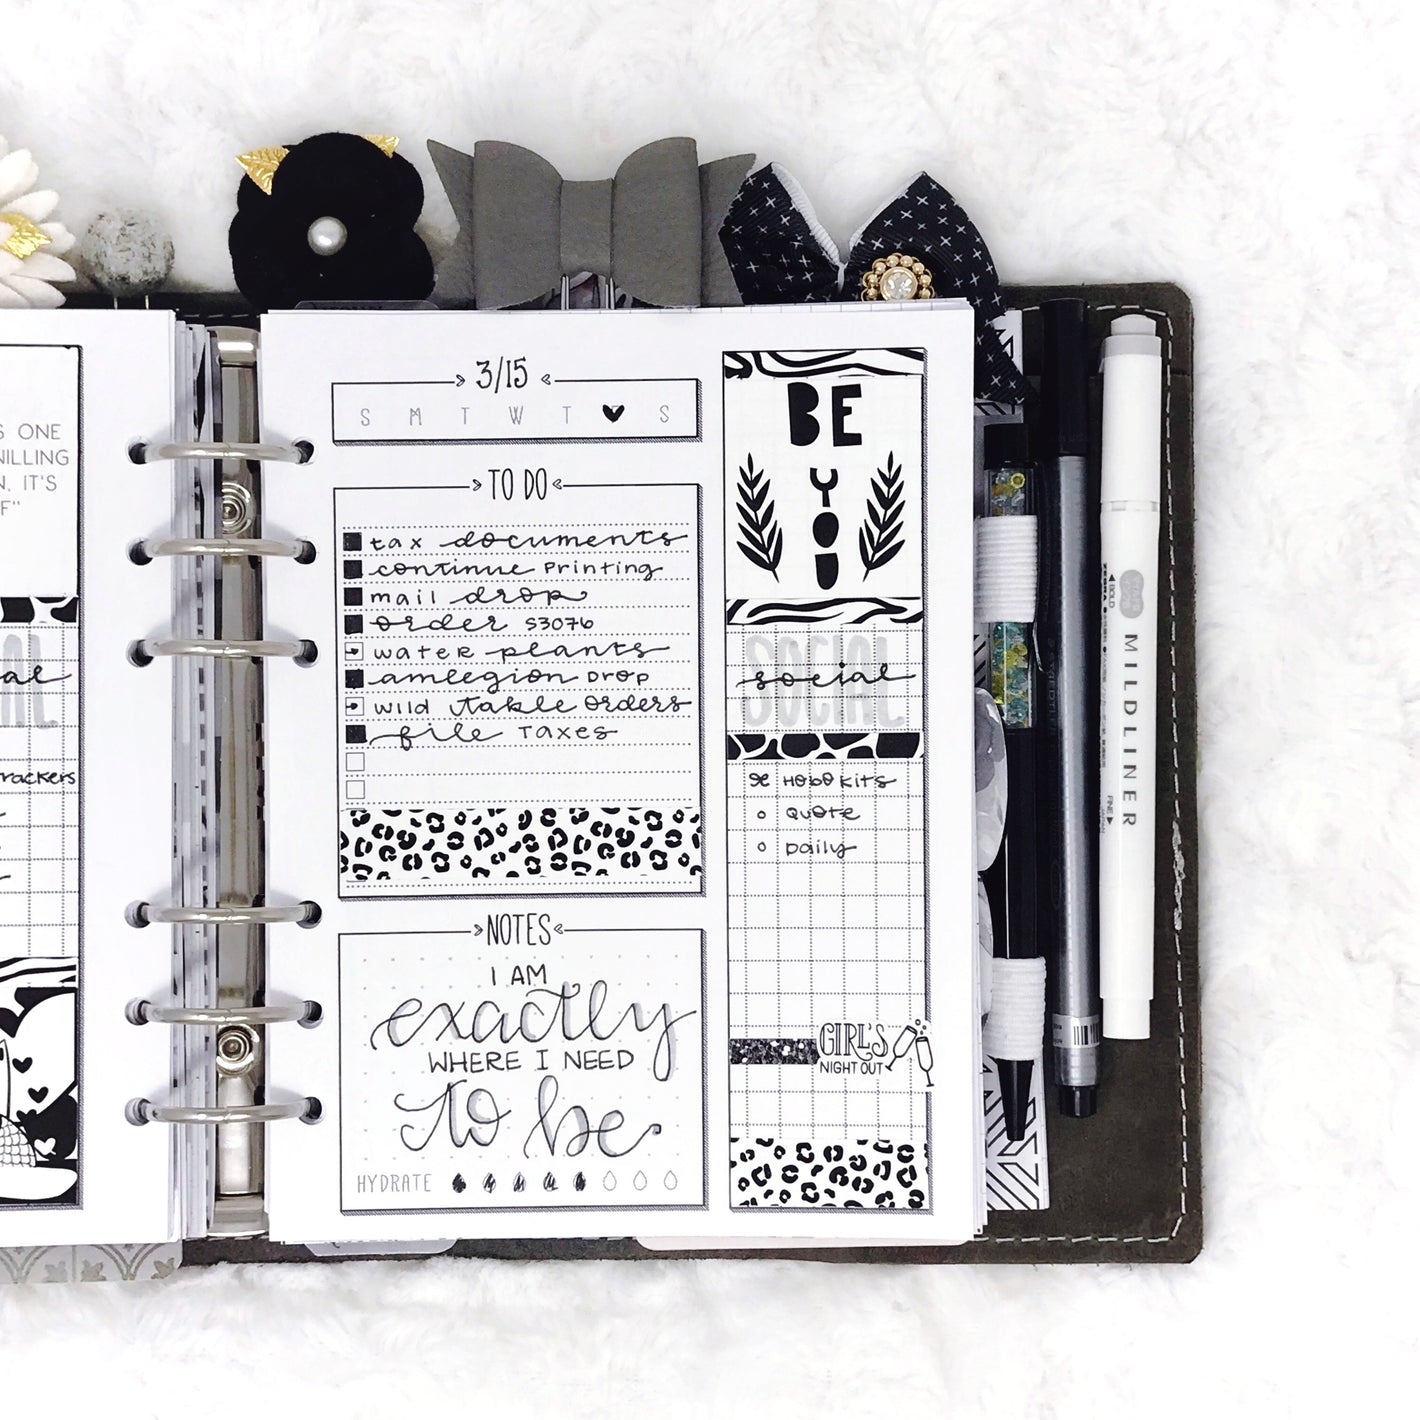 S ONE
WILLING
N, IT'S
F"
al
rackers
3/15
S M T W T S
TO DO
tax documents
continue Printing
mail drop
order S3076
water plants
amlegion DROP
wild Table Orders
file Taxes
NOTES
I AM
exactly
WHERE I NEED
to be
HYDRATE
BE
YOU
SOCIAL
social
HOBO KITS
QUOTE
Daily
GIRL'S
NIGHT OUT
BOLD
ZEBRA
MILDLINER
FINE